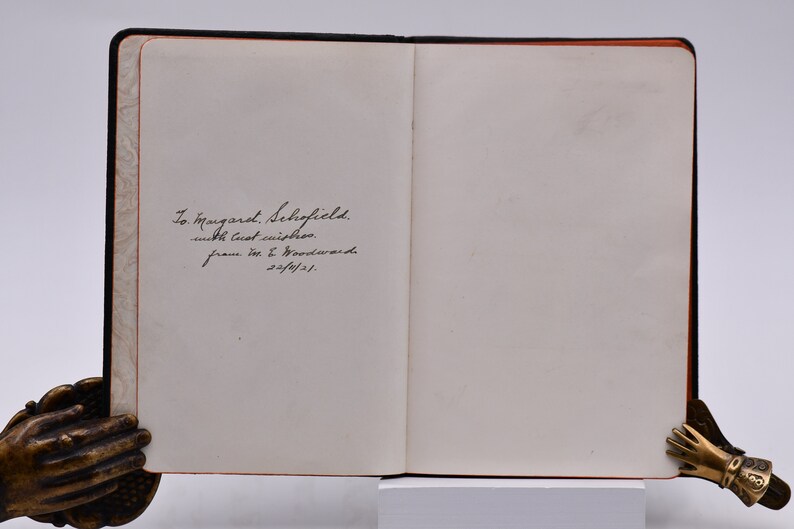 To. Margaret. Schofield.
with best wishes.
from M. E Woodward.
22/11/21.